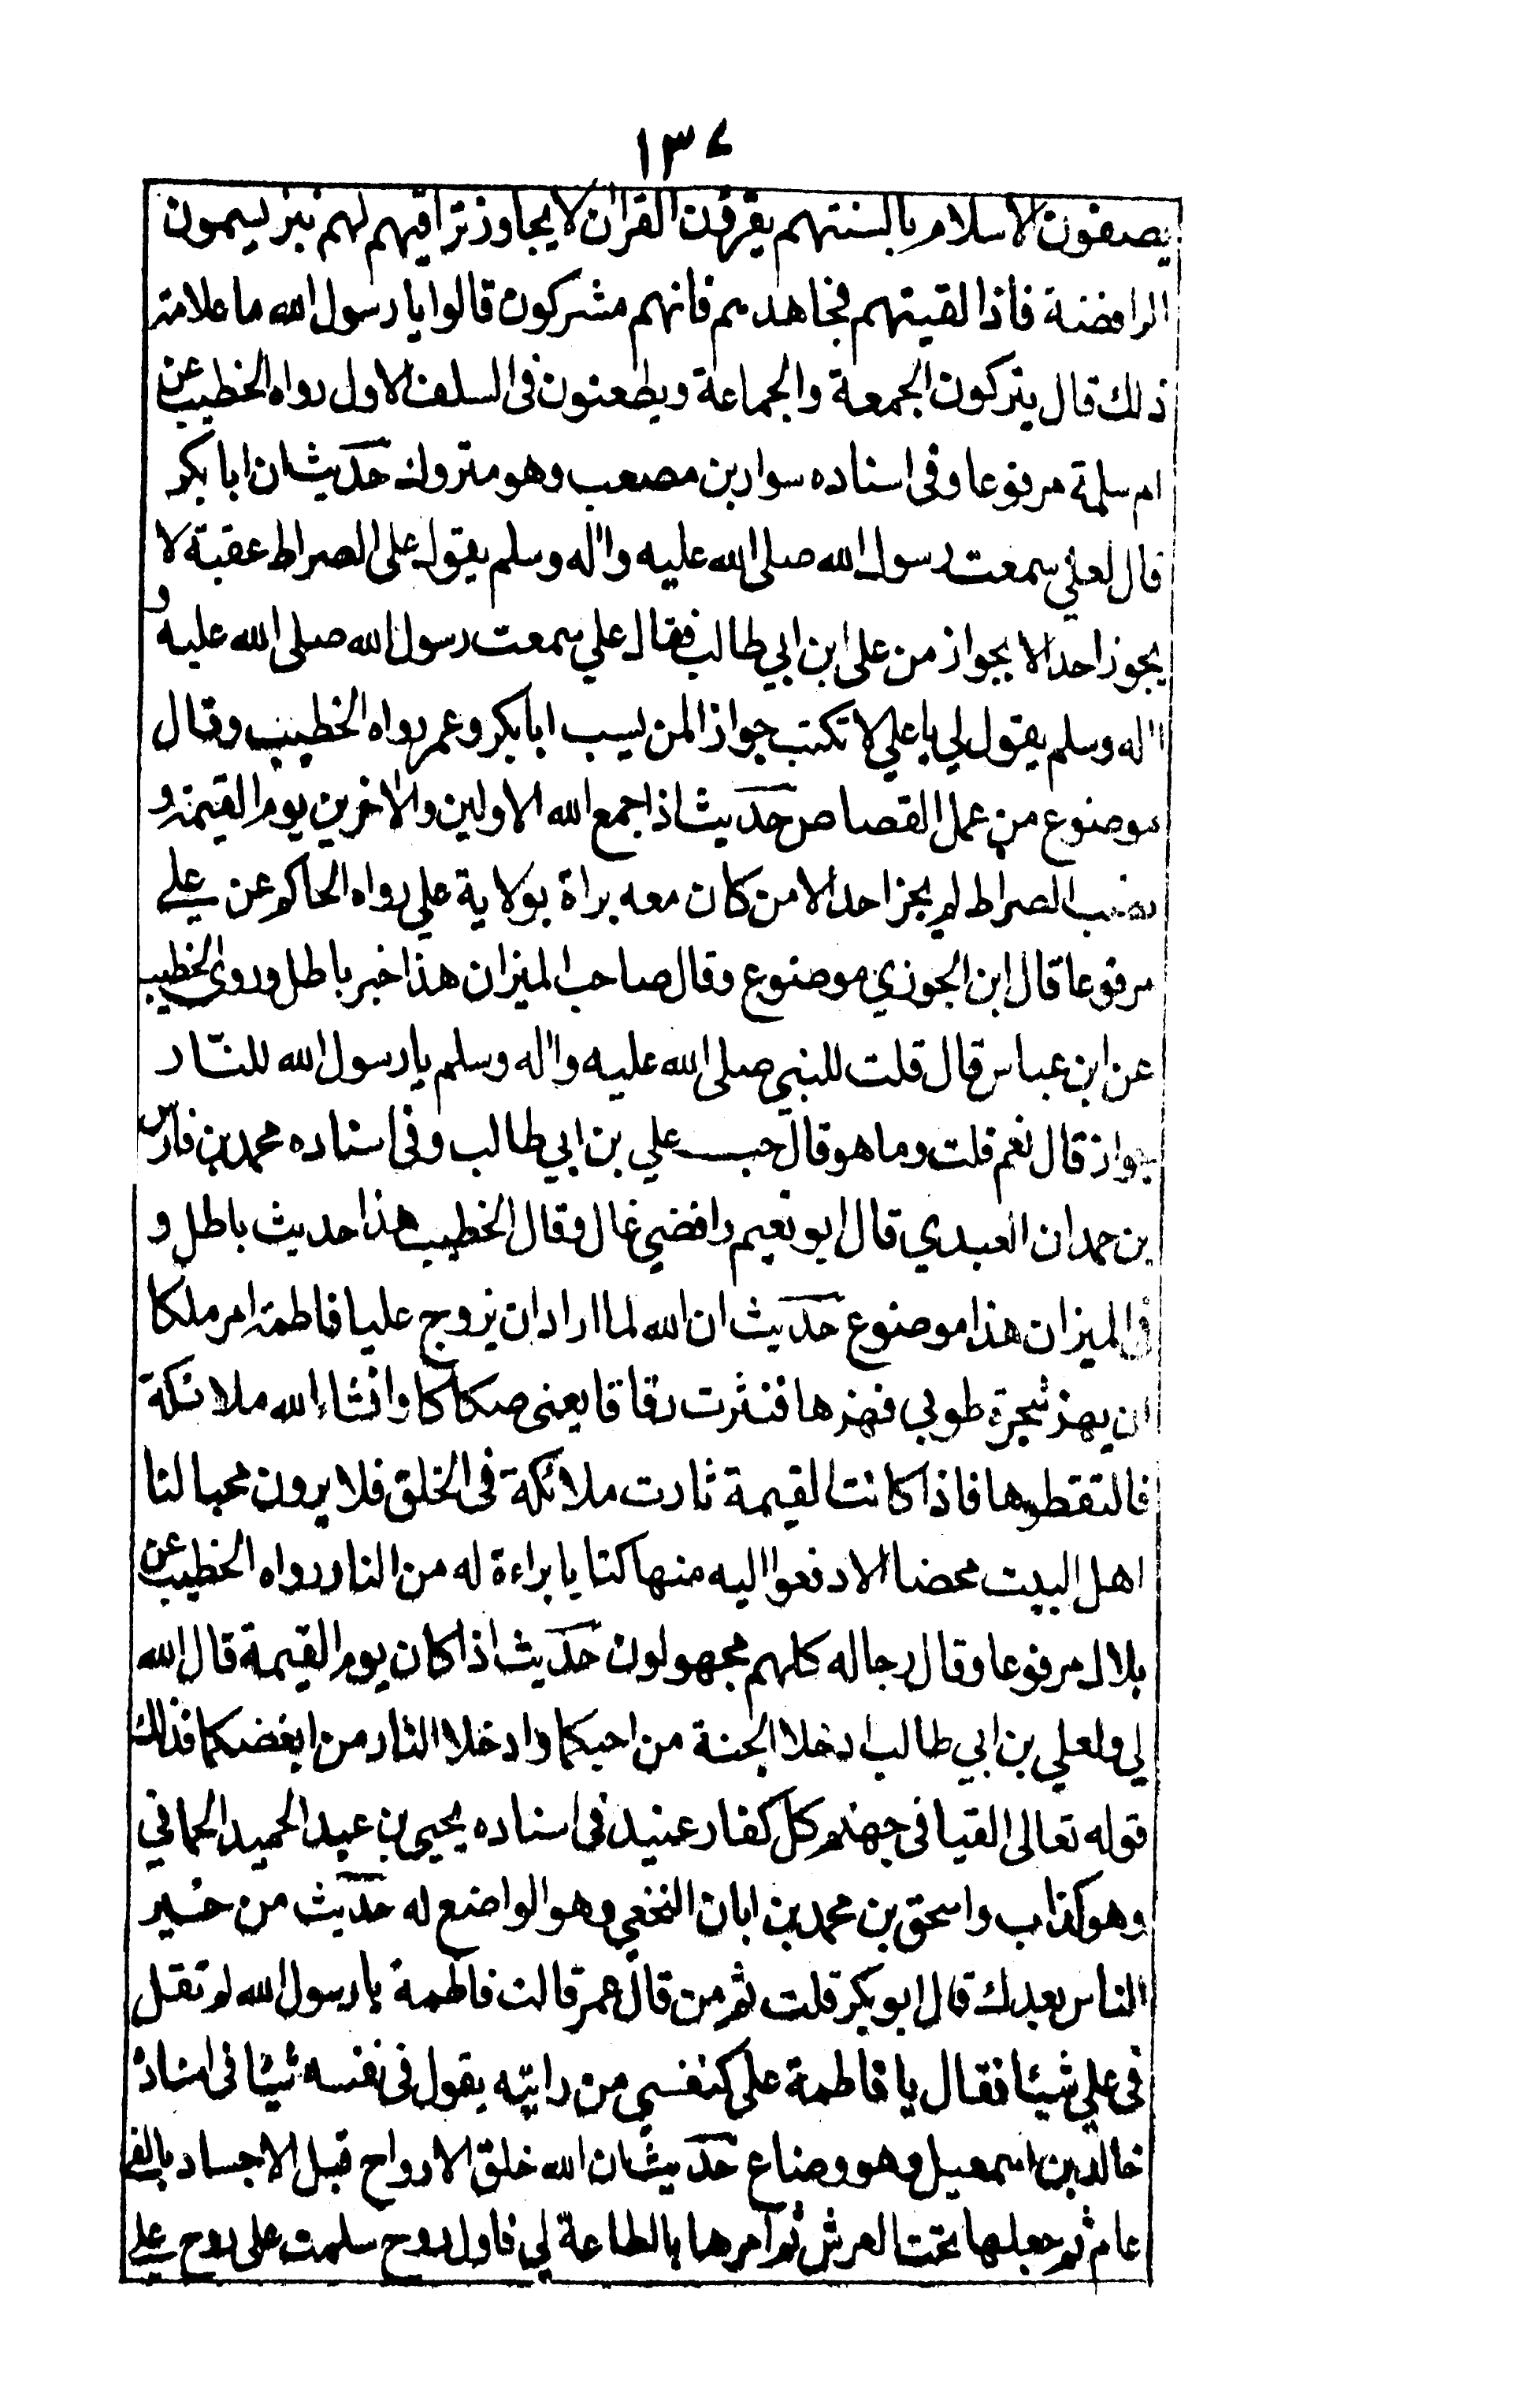 ١٣٧
يصفون الاسلام بالسنتهم يقرؤن القراٰن لا يجاوز تراقيهم لهم نبز يسمون
الرافضة فاذا لقيتهم فجاهدهم فانهم مشركون قالوا يا رسول الله ما علامة
ذلك قال يتركون الجمعة والجماعة ويطعنون فى السلف الاول رواه الخطيب عن
ام سلمة مرفوعا وفى اسناده سوار بن مصعب وهو متروك حديث ان ابا بكر
قال لعلي سمعت رسول الله صلى الله عليه واٰله وسلم يقول على الصراط عقبة لا
يجوز احد الا بجواز من على ابن ابي طالب فقال علي سمعت رسول الله صلى الله عليه و
اٰله وسلم يقول لي يا علي لا تكتب جوازا لمن يسب ابا بكر وعمر رواه الخطيب وقال
موضوع من عمل القصاص حديث اذا جمع الله الاولين والاخرين يوم القيمة و
نصب الصراط لم يجز احد الا من كان معه براة بولاية علي رواه الحاكم عن علي
مرفوعا قال ابن الجوزي موضوع وقال صاحب الميزان هذا خبر باطل وروى الخطيب
عن ابن عباس قال قلت للنبي صلى الله عليه واٰله وسلم يا رسول الله للنّار
جواز قال نعم قلت وما هو قال حب علي بن ابي طالب وفى اسناده محمد بن فارس
بن حمدان العبدي قال ابو نعيم رافضي غال وقال الخطيب هذا حديث باطل و
فى الميزان هذا موضوع حديث ان الله لما اراد ان يزوج عليا فاطمة امر ملكا
ان يهز شجرة طوبي فهزها فنثرت رقاقا يعنى صكاكا وانشاء الله ملائكة
فالتقطوها فاذا كانت القيمة ثارت ملائكة فى الخلق فلا يرون محبا لنا
اهل البيت محضا الا دفعوا اليه منها كتابا براءة له من النار رواه الخطيب عن
بلال مرفوعا وقال رجاله كلهم مجهولون حديث اذا كان يوم القيمة قال الله
لي ولعلي بن ابي طالب ادخلا الجنة من احبكما وادخلا النار من ابغضكما فذلك
قوله تعالى القيا فى جهنم كل كفار عنيد فى اسناده يحيى بن عبد الحميد الحماني
وهو كذاب واسحق بن محمد بن ابان النخعي وهو الواضع له حديث من خير
الناس بعدك قال ابو بكر قلت ثم من قال عمر قالت فاطمة يا رسول الله لم تقل
فى علي شيئا فقال يا فاطمة على كنفسي من رايته يقول فى نفسه شيئا فى اسناده
خالد بن اسمعيل وهو وضاع حديث ان الله خلق الارواح قبل الاجساد بالفي
عام ثم جعلها تحت العرش ثم امرها بالطاعة لي فاول روح سلمت على روح علي